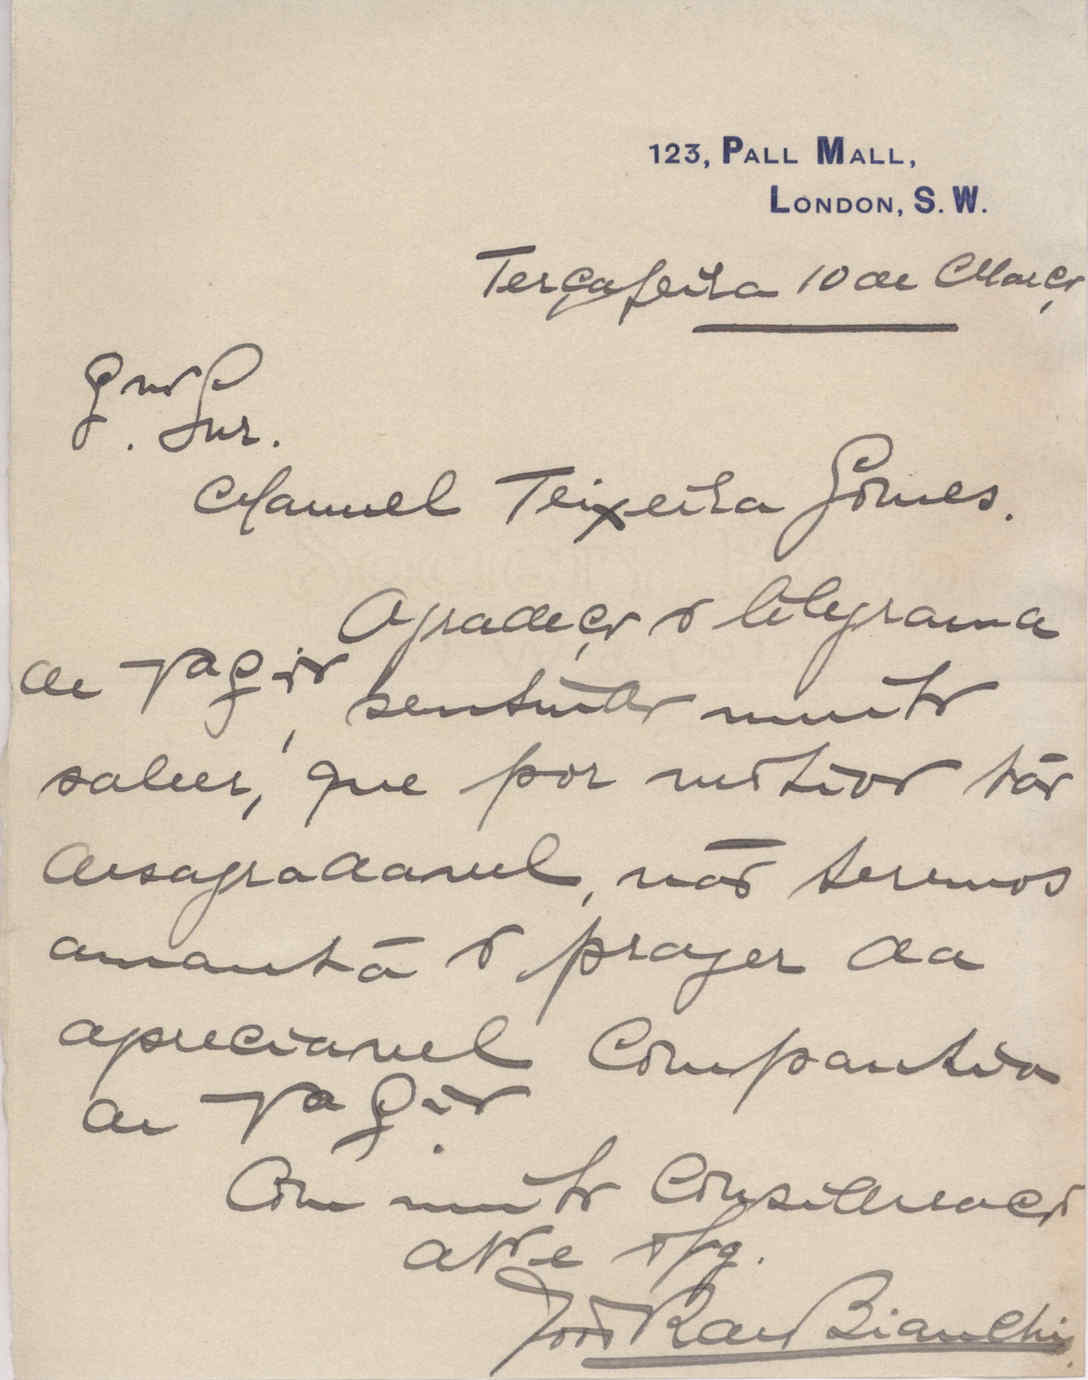 123, PALL MALL,
LONDON, S. W.
Terçafeira 10 de Março
Exmo Snr.
Manuel Teixeira Gomes.
Agradeço o telegrama
de Va Exia, sentindo muito
saber, que por motivo tão
desagradavel, não teremos
amanhã o prazer da
apreciavel Companhia
de Va Exia.
Com muito Consideração
João Bianchi